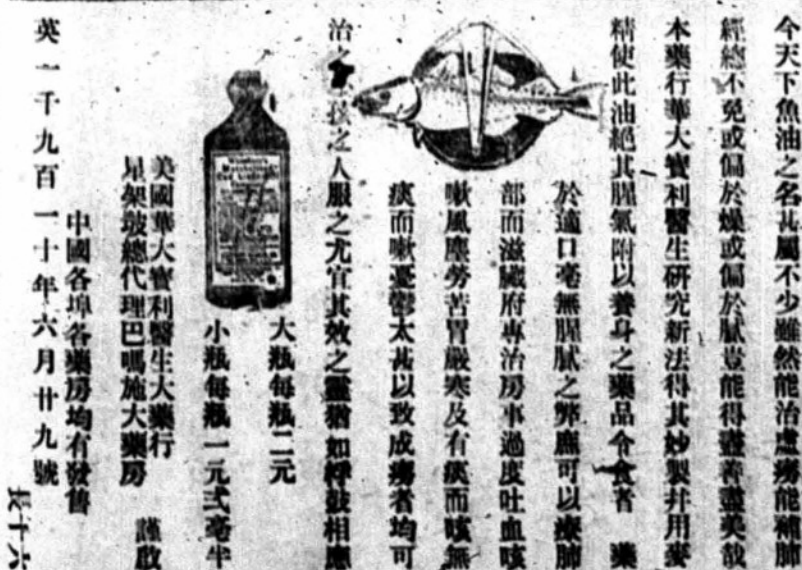 今天下魚油之名甚屬不少雖然能治虛癆能補肺
經總不免或偏於燥或偏於膩豈能得盡善盡美哉
本藥行華大寶利醫生研究新法得其妙製幷用麥
精使此油絕其腥氣附以養身之藥品令食者 藥
於適口毫無腥膩之弊應可以療肺
部而滋臟府專治房事過度吐血咳
嗽風塵勞苦冒嚴寒及有痰而咳無
痰而嗽憂鬱太甚以致成癆者均可
治之 之人服之尤宜其效之靈猶如桴鼓相應
大瓶每瓶二元
小瓶每瓶一元弍毫半
美國華大寶利醫生大藥行
星架坡總代理巴嗎施大藥房 謹啟
中國各埠各藥房均有發售
英一千九百一十年六月廿九號
長十六